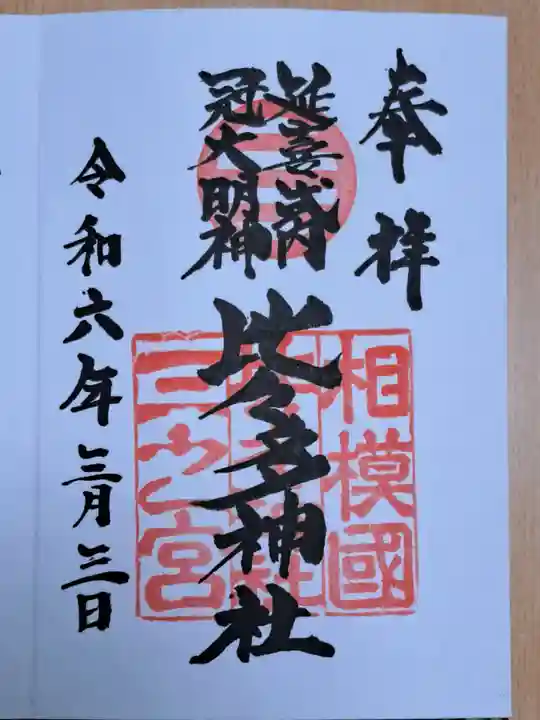 奉拝
延喜式内
冠大明神
比々多神社
相模國
三之宮
令和六年三月三日